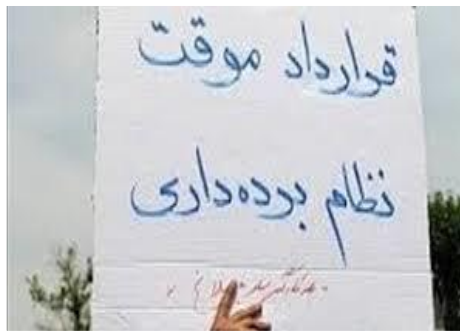 قرارداد موقت
نظام برده‌داری